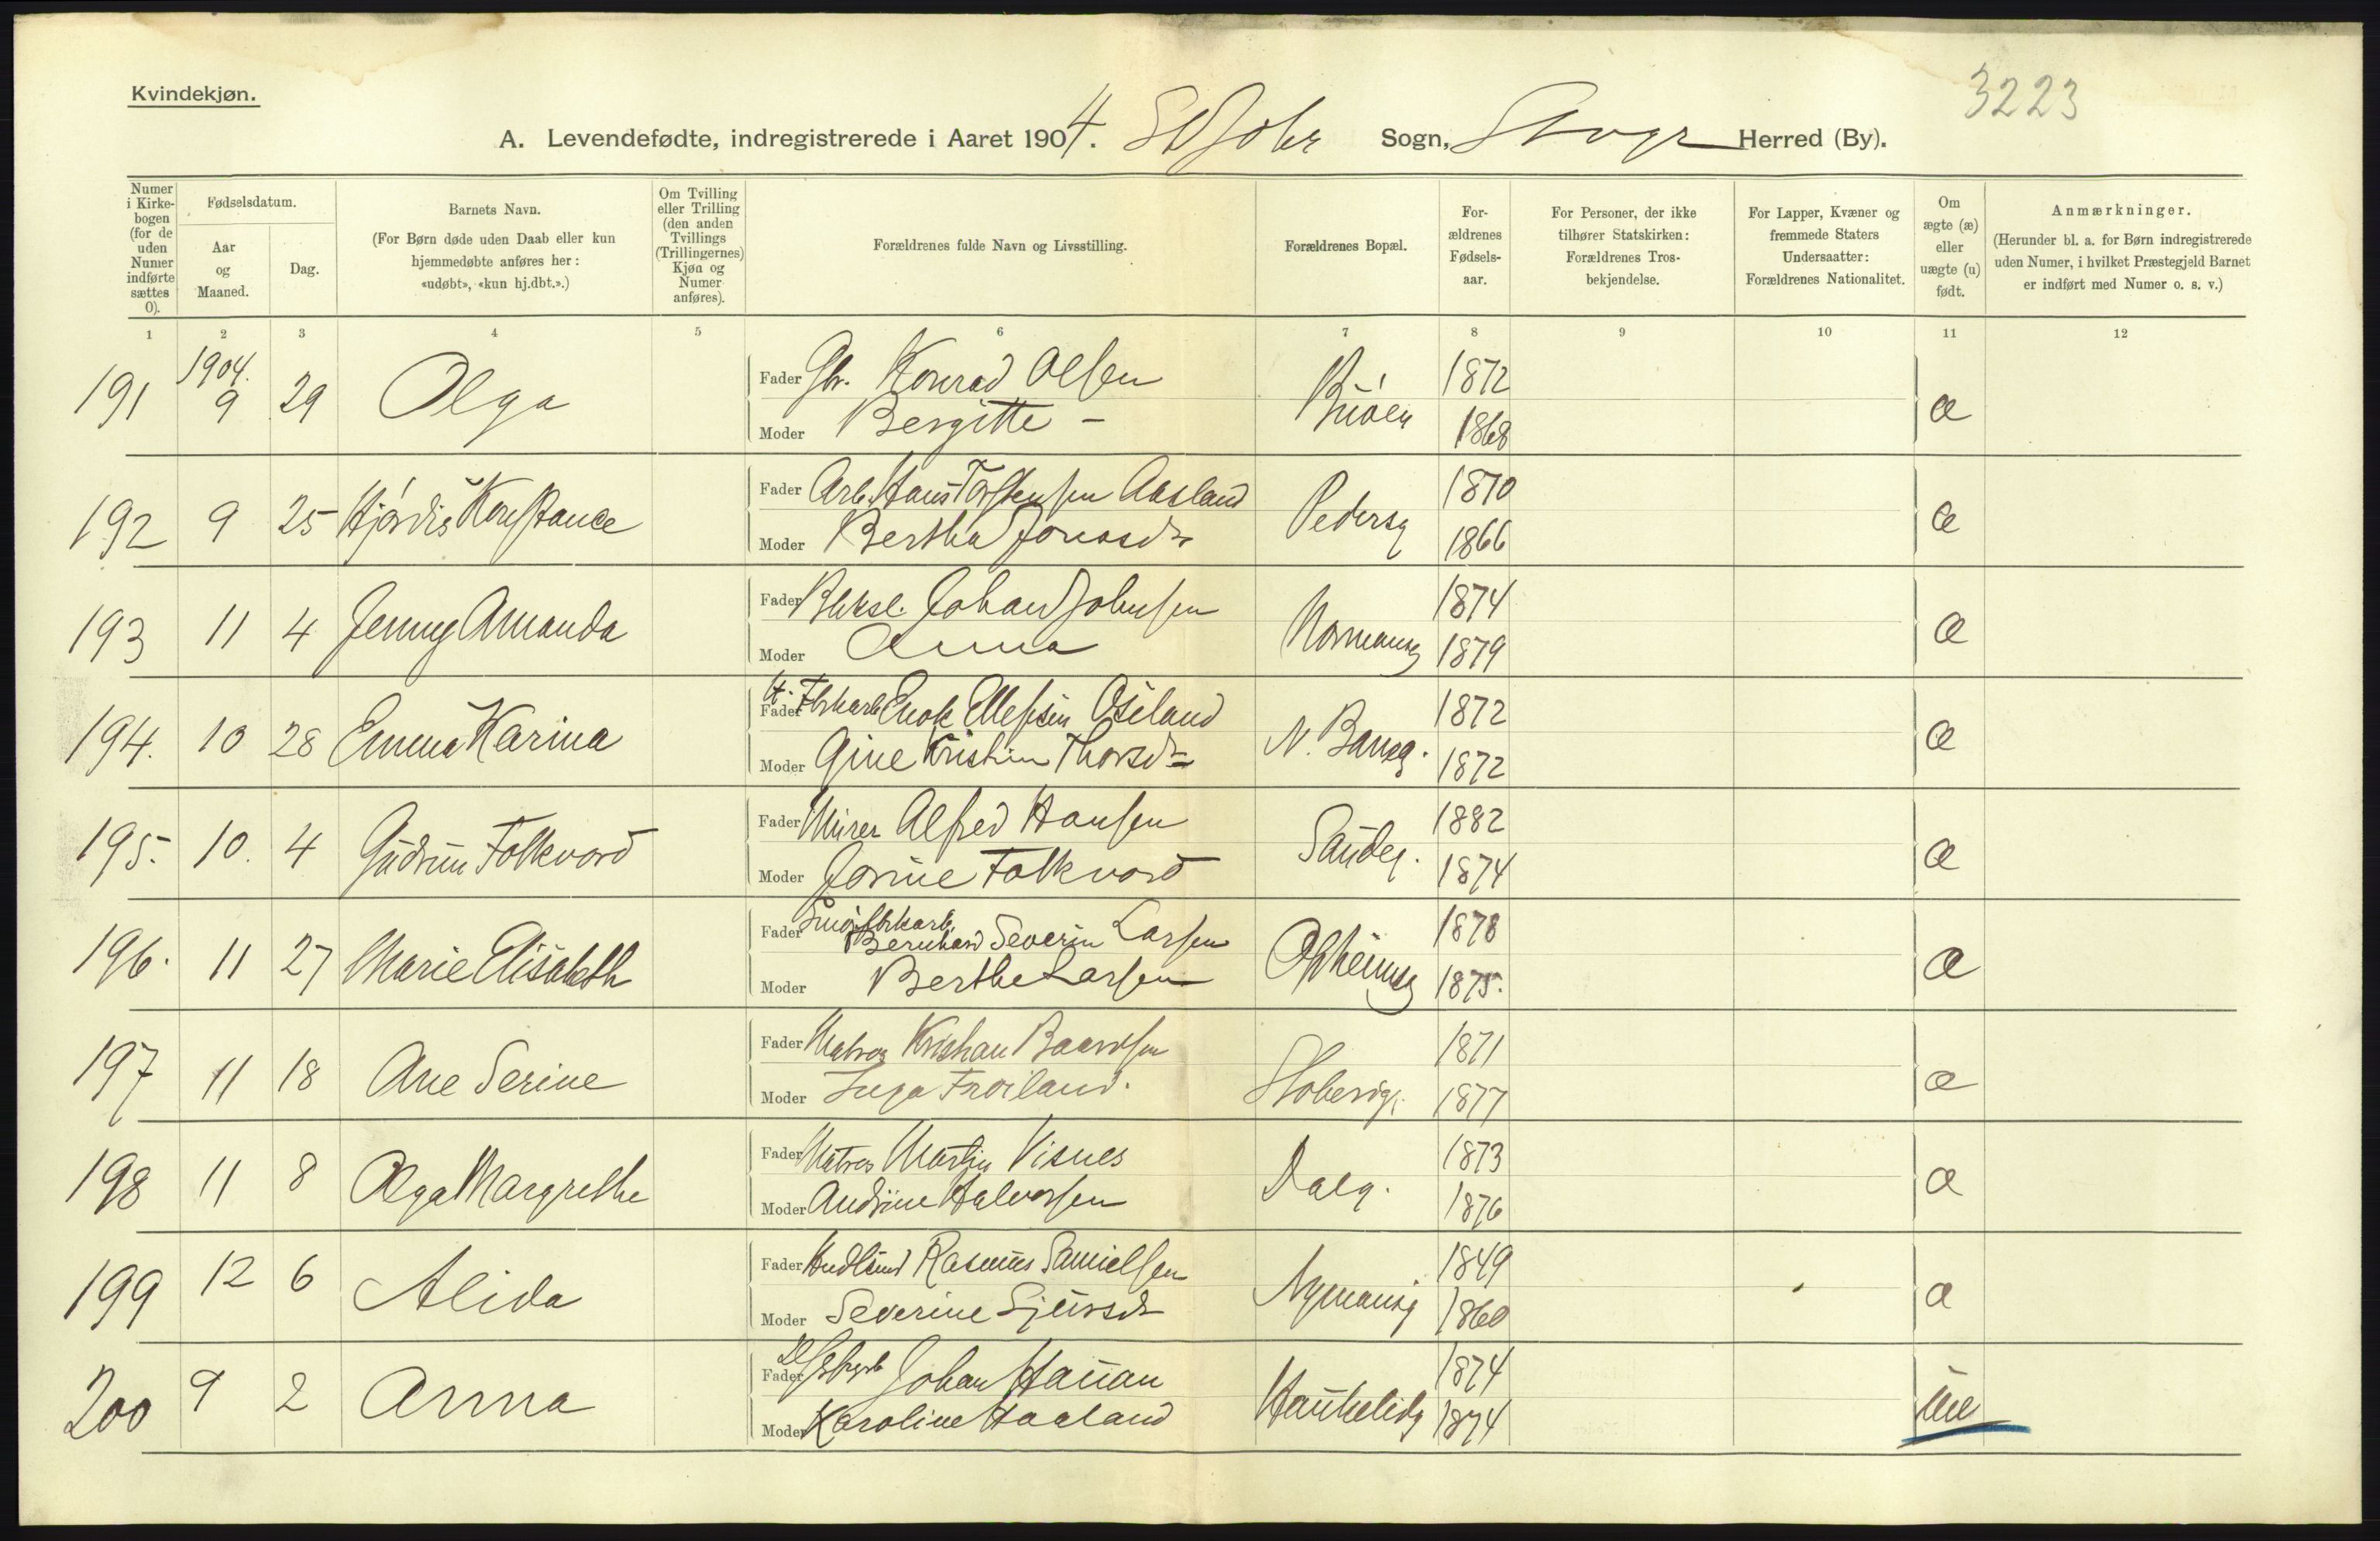 Kvindekjøn.
3223
A. Levendefødte, indregistrerede i Aaret 1904. St Joh Sogn, Stvgr Herred (By).
Numer i Kirkebogen (for de uden Numer indførte sættes 0).
Fødselsdatum.
Aar og Maaned.
Dag.
Barnets Navn.
(For Børn døde uden Daab eller kun hjemmedøbte anføres her: «udøbt», «kun hj.dbt.».)
Om Tvilling eller Trilling (den anden Tvillings (Trillingernes) Kjøn og Numer anføres).
Forældrenes fulde Navn og Livsstilling.
Forældrenes Bopæl.
Forældrenes Fødselsaar.
For Personer, der ikke tilhører Statskirken: Forældrenes Trosbekjendelse.
For Lapper, Kvæner og fremmede Staters Undersaatter: Forældrenes Nationalitet.
Om ægte (æ) eller uægte (u) født.
Anmærkninger.
(Herunder bl. a. for Børn indregistrerede uden Numer, i hvilket Præstegjeld Barnet er indført med Numer o. s. v.)
1 2 3 4 5 6 7 8 9 10 11 12
191 1904. 9 29 Olga Fader Gbr. Konrad Olsen Buöen 1872 æ
Moder Bergitte - 1868
192 9 25 Hjørdis Konstance Fader Arb. Hans Torstensen Aasland Pedersg 1870 æ
Moder Bertha Jonasdr 1866
193 11 4 Jenny Amanda Fader Blksl. Johan Johnsen Normannsg 1874 æ
Moder Anna 1879
194. 10 28 Emma Karina Fader Enok Ellefsen Oseland N. Baneg. 1872 æ
Moder Gine Kristine Thorsdr 1872
195. 10. 4 Gudrun Folkvord Fader Murer Alfred Hansen Sandeg. 1882 æ
Moder Jorine Folkvord 1874
196. 11 27 Marie Elisabeth Fader Bernhard Severin Larsen Opheimsg 1878 æ
Moder Berthe Larsen 1875.
197 11 18 Ane Serine Fader Matros Kristian Baardsen Stobersg. 1871 æ
Moder Inga Frøiland. 1877
198 11 8 Olga Margrethe Fader Matros Martin Visnes Dalg. 1873 æ
Moder Andrine Halvorsen 1876
199 12 6 Alida Fader Rasmus Samuelsen Nymansg 1849 æ
Moder Severine Sjursdr 1860
200 9 2 Anna Fader Johan Hauan Haukelidg 1874 ue
Moder Karoline Haaland 1874